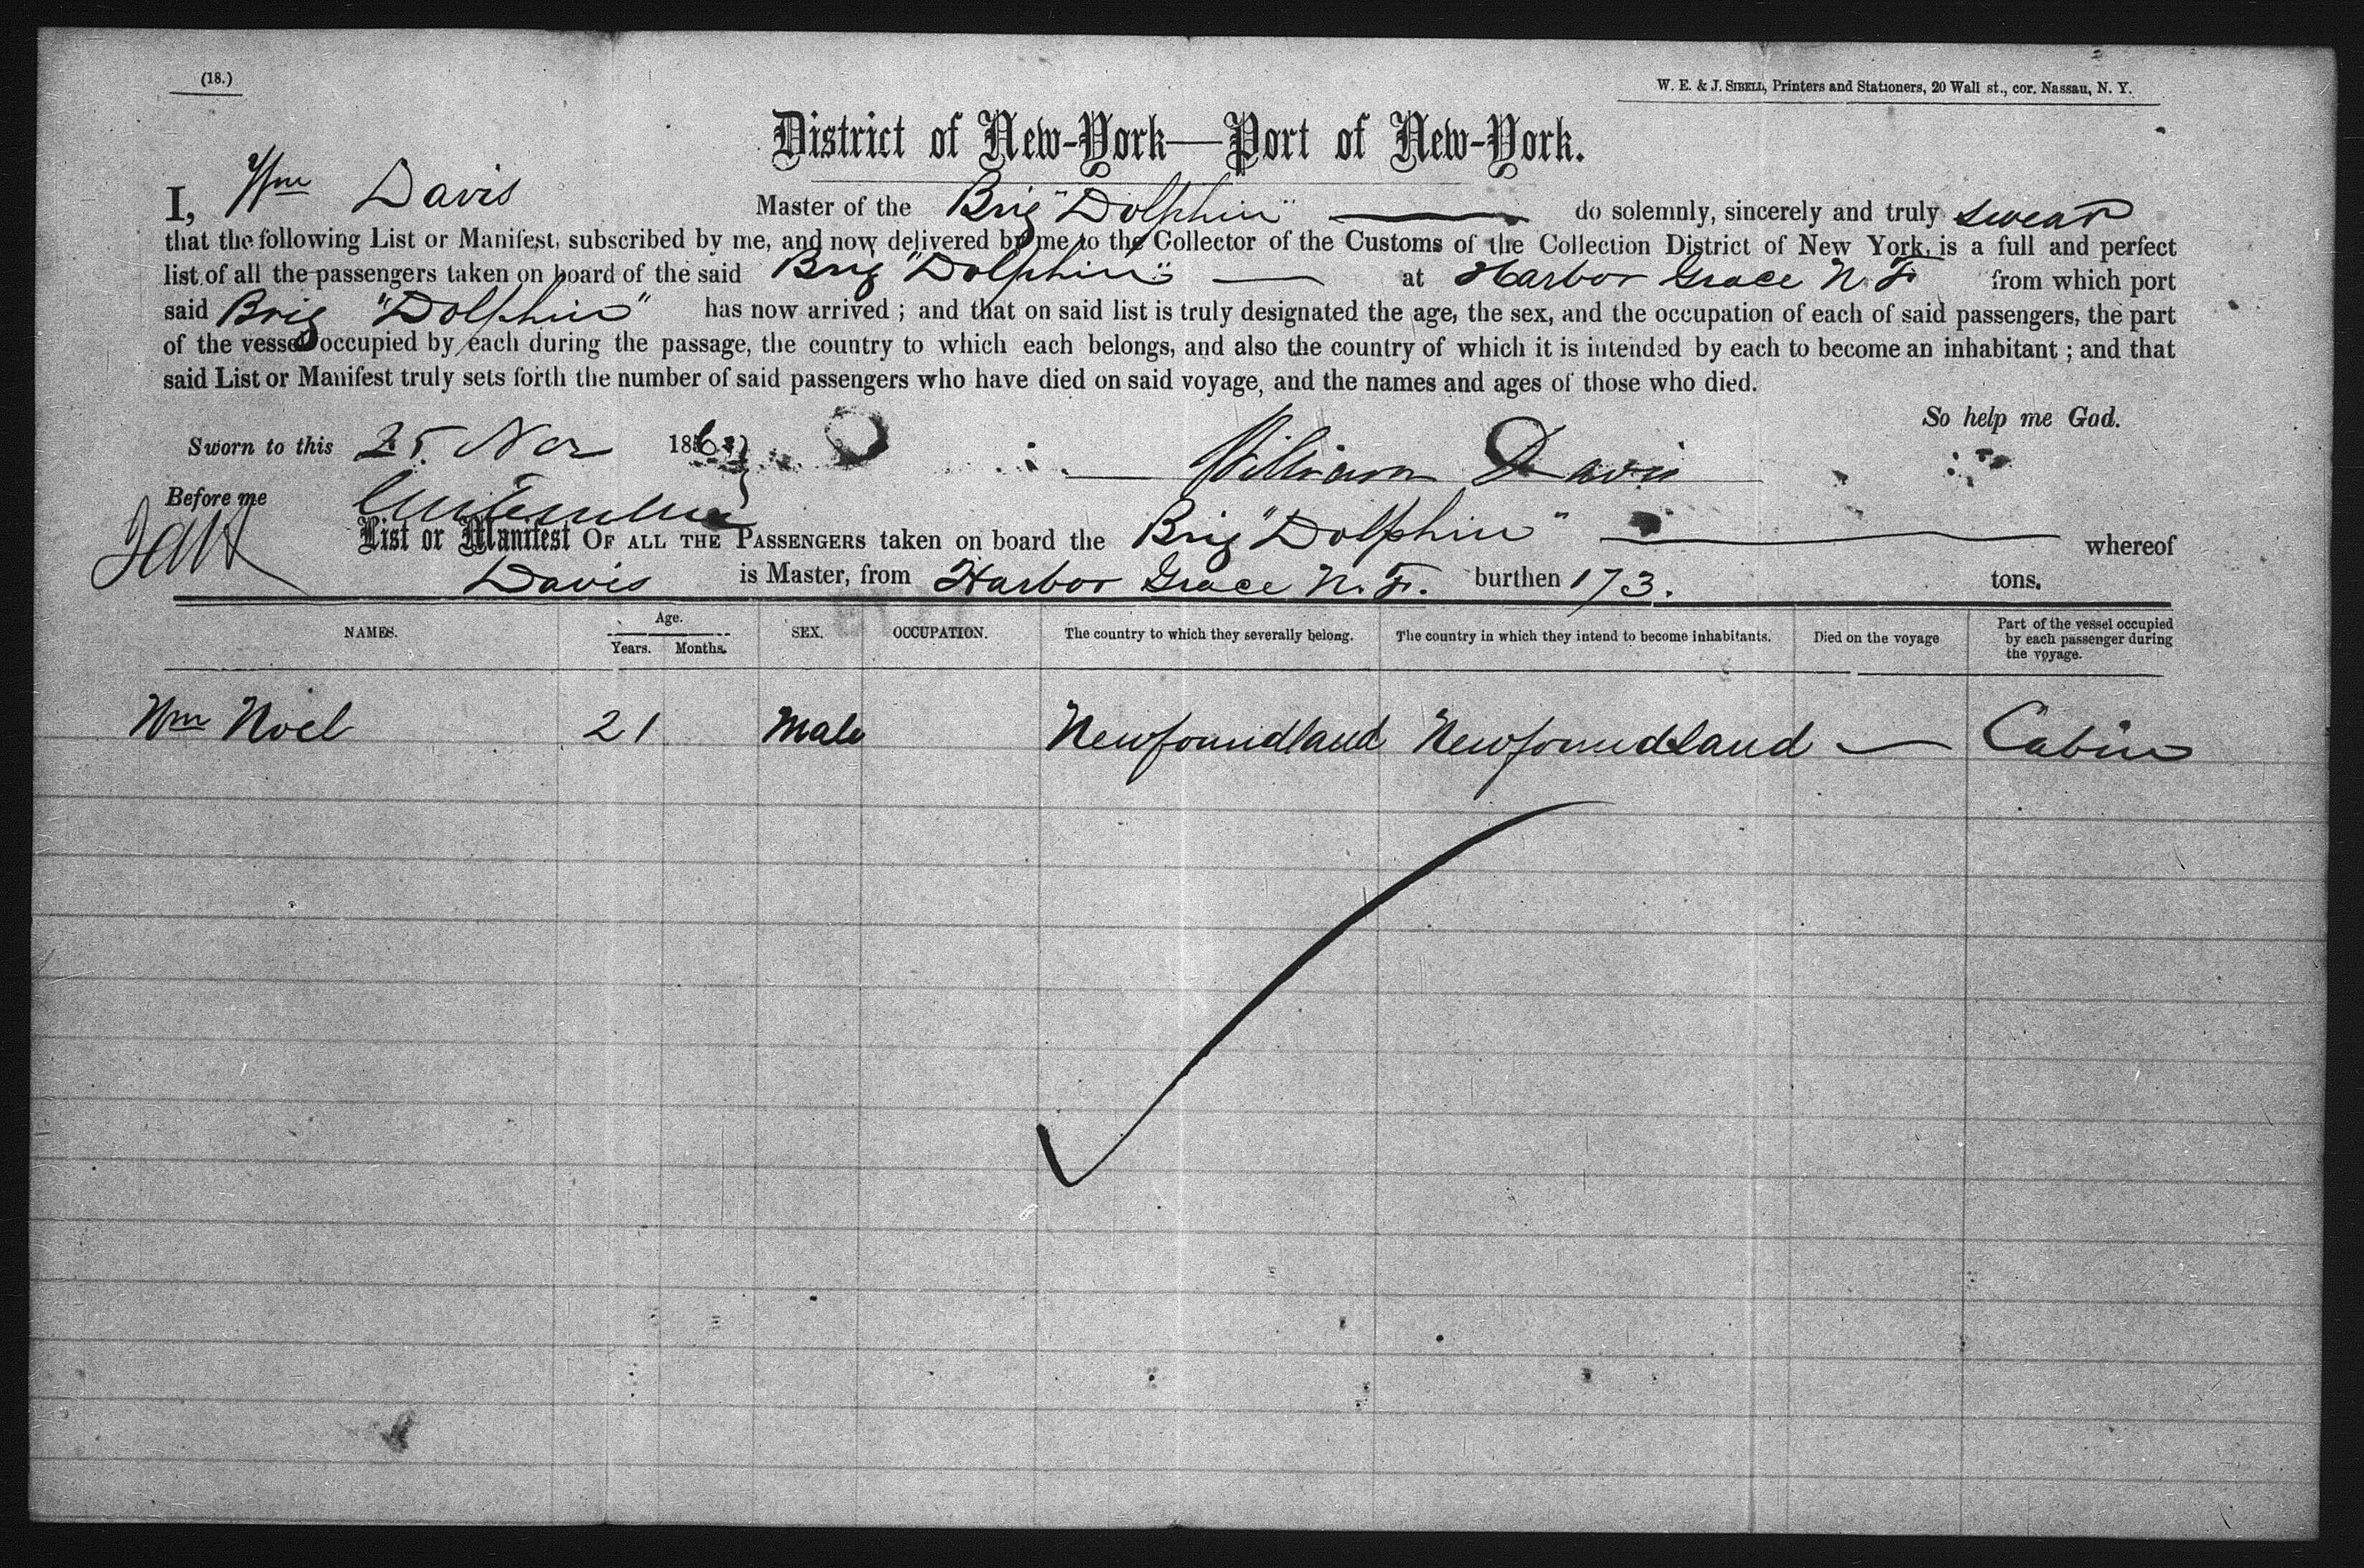 (18.)
W. E. & J. SIBELL, Printers and Stationers, 20 Wall st., cor. Nassau, N. Y.
District of New-York—Port of New-York.
I, Wm Davis Master of the Brig "Dolphin" do solemnly, sincerely and truly swear
that the following List or Manifest, subscribed by me, and now delivered by me to the Collector of the Customs of the Collection District of New York, is a full and perfect
list of all the passengers taken on board of the said Brig "Dolphin" at Harbor Grace N. F. from which port
said Brig "Dolphin" has now arrived ; and that on said list is truly designated the age, the sex, and the occupation of each of said passengers, the part
of the vessel occupied by each during the passage, the country to which each belongs, and also the country of which it is intended by each to become an inhabitant ; and that
said List or Manifest truly sets forth the number of said passengers who have died on said voyage, and the names and ages of those who died.
So help me God.
Sworn to this 25 Nov 186
William Davis
Before me
List or Manifest OF ALL THE PASSENGERS taken on board the Brig "Dolphin" whereof
Davis is Master, from Harbor Grace N. F. burthen 173. tons.
NAMES. Age. Years. Months. SEX. OCCUPATION. The country to which they severally belong. The country in which they intend to become inhabitants. Died on the voyage Part of the vessel occupied by each passenger during the voyage.
Wm Noel 21 Male Newfoundland Newfoundland — Cabin